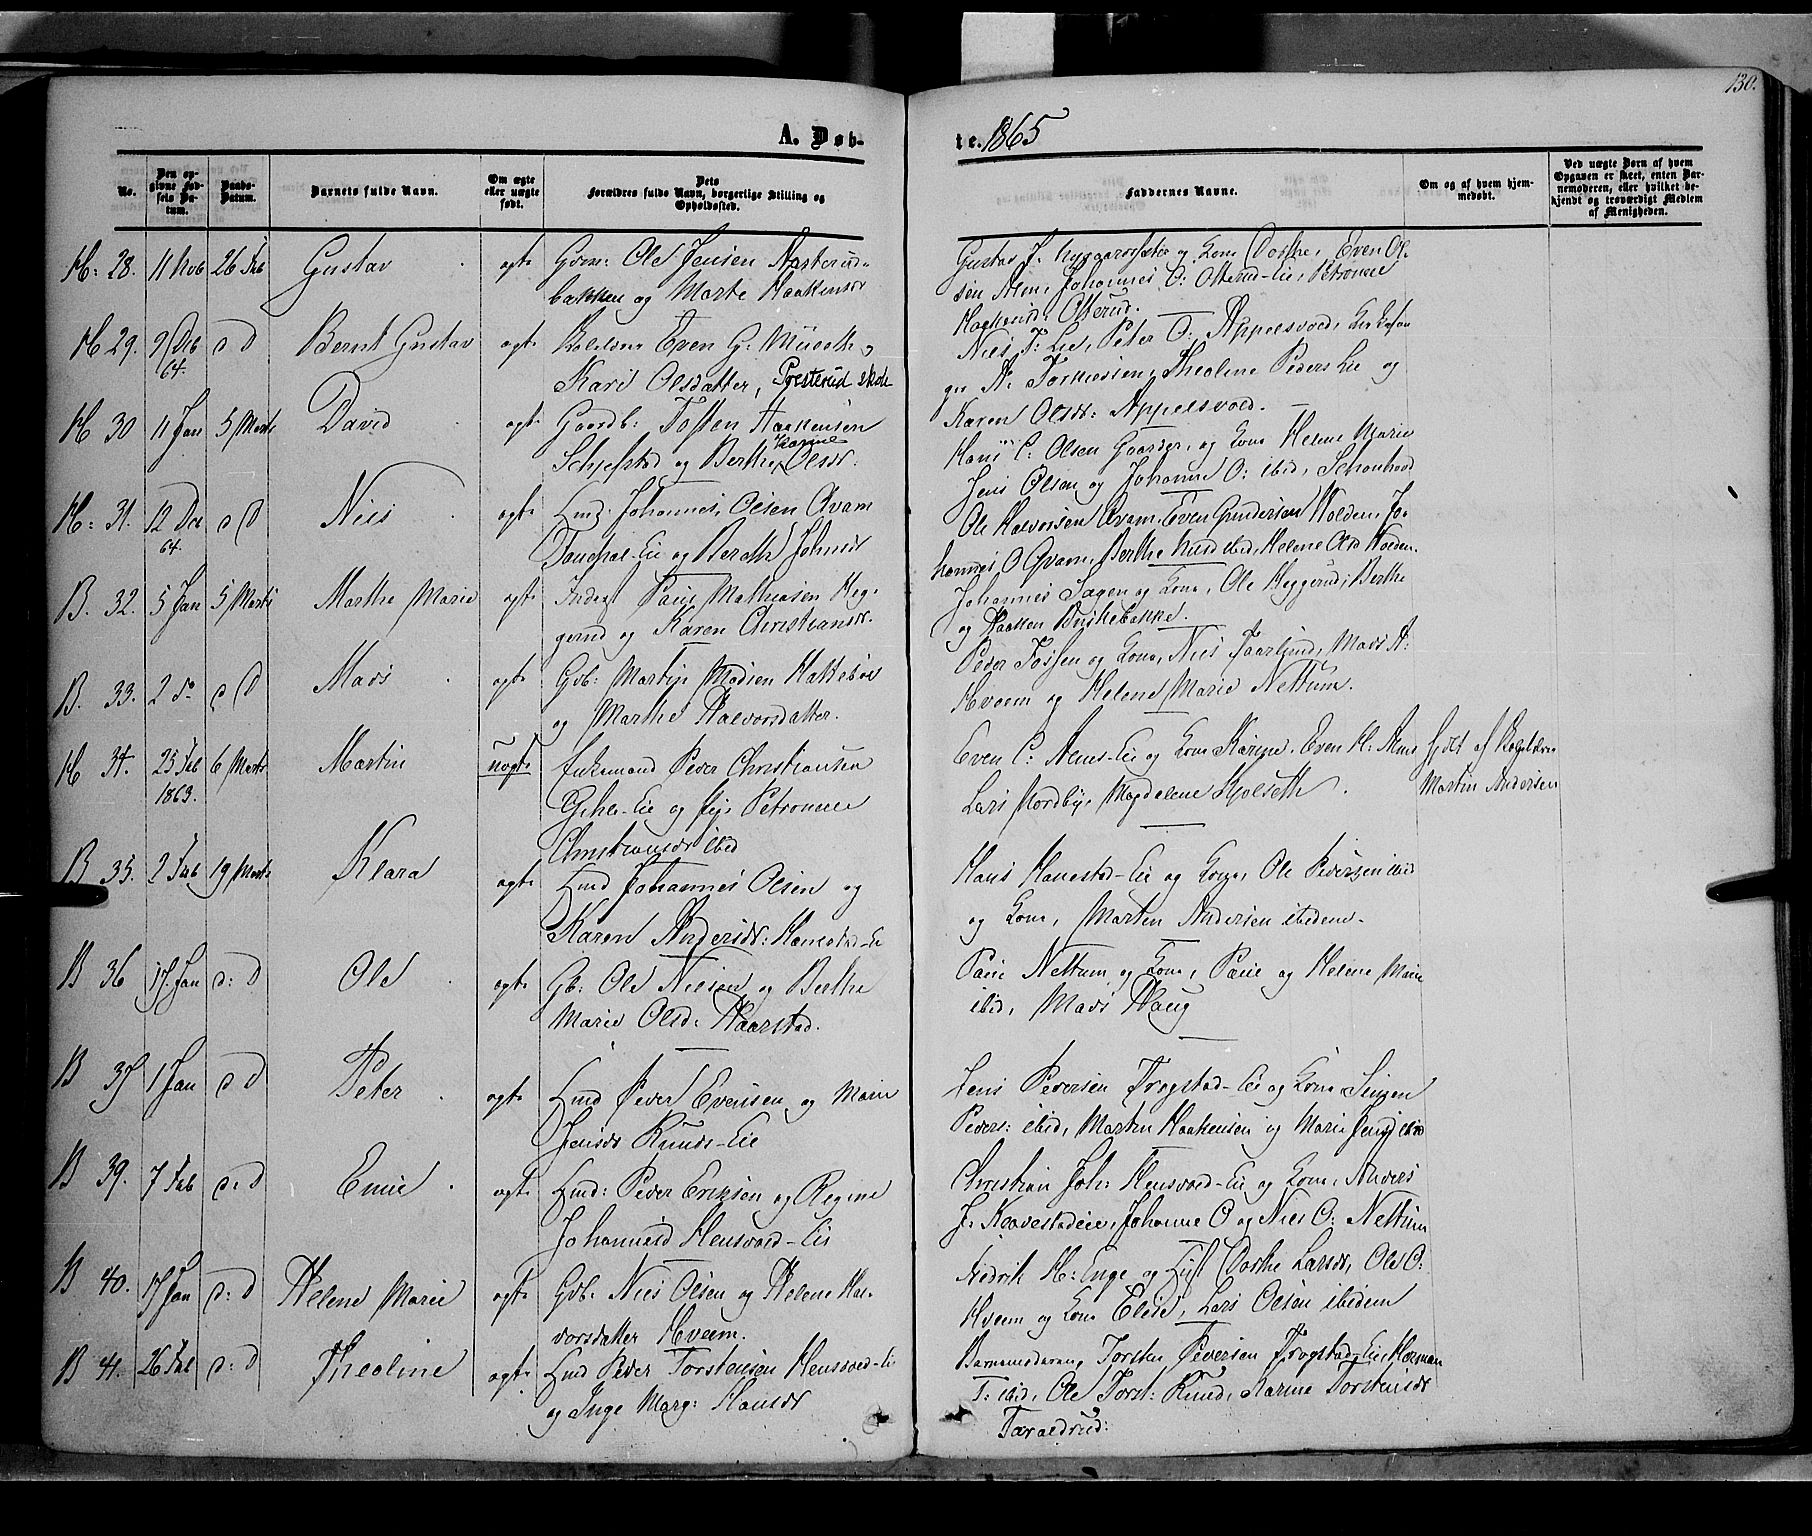 130.
A. Døb-
te. 1865
No.
Den op-
givne Fød-
sels Da-
tum.
Daabs-
Datum.
Barnets fulde Navn.
Om ægte
eller uægte
født.
Dets
Forældres fulde Navn, borgerlige Stilling og
Opholdssted.
Faddernes Navne.
Om og af hvem hjem-
medøbt.
Ved uægte Børn af hvem
Opgaven er skeet, enten Bar-
nemoderen, eller hvilket be-
kjendt og troværdigt Medlem
af Menigheden.
H: 28. 11 Nov 26 Feb Gustav ægte Gdm: Ole Jensen
bakken og Marte Haakensdr
Gustav J. og Kone Dorthe, Even Ol-
sen Alm, Johannes O: Olterud-Eie, Petronne
Haakensd: Olterud.
H 29. 9 Dec d D Bernt Gustav ægte Even G.
64.
Kari Olsdatter, Presterud skole
Nils T. Lie, Peter O. Appelsvold, Kirkesan-
ger A. Torkilsen, Theoline Peders Lie og
Karen Olsdr: Appelsvold.
H 30 11 Jan 5 Marts David ægte Gaardb: Tosten Haakensen
Karine
Schjefstad og Berthe Olsdr.
Hans C: Olsen Gaarder, og Kone Helene Marie
Jens Olsen og Johanne O: ibid, Schonhovd
H: 31. 12 Dec d D Nils ægte Hmd. Johannes Olsen Qvam
64.
og Berthe Johnsdr
Ole Halvorsen Qvam, Even Gundersen Volden, Jo-
hannes O Qvam, Berthe ibid, Helene Olsd Volden.
B. 32. 5 Jan 5 Marts Marthe Marie ægte Inderst Paul Mathiasen Heg-
gerud og Karen Christiansdr.
Johannes Sagen og Kone, Ole Heggerud, Berthe
og Haaken Buskebakke.
B. 33. 2 d d D Mads ægte Gdb: Martin Madsen
og Marthe Halvorsdatter.
Peder Tossen og Kone, Nils Faarlund, Mads A:
Hveem og Helene Marie Nettum.
H 34. 25 Feb 6 Marts Martin uægte Enkemand Peder Christiansen
1863.
-Eie og Pige Petronne
Christiansdr ibid
Even C: Alms-Eie og Kone Karine, Even H. Alm
Lars Nordby, Magdelene Kjølseth.
Hjdbt af
Martin Andersen
B 35. 2 Feb 19 Marts Klara ægte Hmd Johannes Olsen og
Karen Andersdr: Hanestad-Eie
Hans Hanestad-Eie og Kone, Ole Pedersen ibid
og Kone, Martin Andersen ibidem.
B 36 17. Jan d: D Ole ægte Gb: Ole Nielsen og Berthe
Marie Olsd: Haarstad.
Paul Nettum og Kone, Paul og Helene Marie
ibid, Mads Haug
B 37 1 Jan d D Peter ægte Hmd Peder Evensen og Marie
Jensdr Knuds-Eie
Jens Pedersen Frogstad-Eie og Kone Singen
Peders: ibid, Martin Haakensen og Marie Jensd ibid
B 39. 7 Feb d: D Emil ægte Hmd: Peder Eriksen og Regine
Johannesd Hensvold-Eie
Christian Joh: Hensvold-Eie og Kone, Anders
J. Johanne O og Nils O: Nettum
B 40. 17 Jan d: D Helene Marie ægte Gdb: Nils Olsen og Helene Hal-
vorsdatter Hveem.
Fredrik H: Enge og Dorthe Larsdr, Ole O:
Hveem og Kone Elise, Lars Olsen ibidem
B 41. 26 Feb d: D Theoline ægte Hmd Peder Torstensen Hensvold-Eie
og Inge Marg: Hansdr
Barnemoderen, Torsten Pedersen Frogstad-Eie, Herman
T: ibid, Ole Torst: Knud, Karine Torstensdr
Taraldrud: